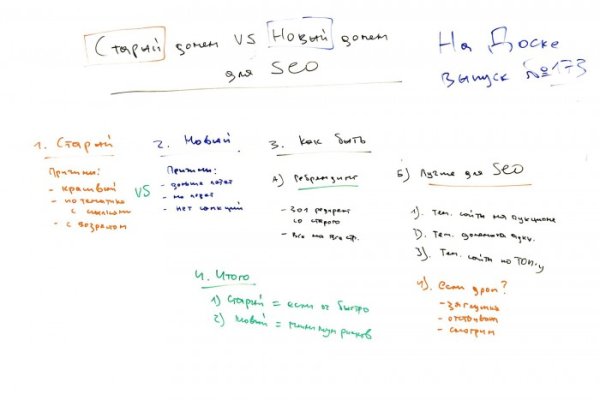 Старый домен VS Новый домен
для SEO
На Доске
выпуск №173
1. Старый
Причины:
- красивый
- по тематике
с ссылками
- с возрастом
VS
2. Новый
Причины:
- дольше
- нет санкций
3. Как быть
А) Ребрендинг
- 301 редирект
со старого
- Все на все стр.
Б) Лучше для SEO
1). Тем. сайты на аукционе
2). Тем. домены аукц.
3). Тем. сайты по ТОП-у
4). Если дроп?
- загнулись
- отстаиваем
- смотрим
4. Итого
1) Старый = если оч быстро
2) Новый = минимум рисков